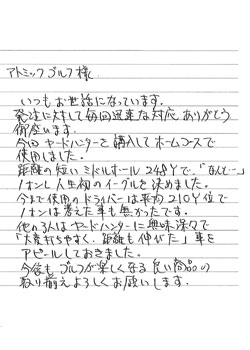 アトミックゴルフ様
いつもお世話になっています。
発注に対して毎回迅速な対応ありがとう
御座います。
今回ヤードハンターを購入してホームコースで
使用しました。
距離の短いミドルホール248Yで、"なんと…"
1オンし人生初のイーグルを決めました。
今まで使用のドライバーは平均210Y位で
1オンは考えた事も無かったです。
他の3人はヤードハンターに興味深々で
「大変打ちやすく、距離も伸びた」事を
アピールしておきました。
今後もゴルフが楽しくなる良い商品の
取り揃えよろしくお願いします。